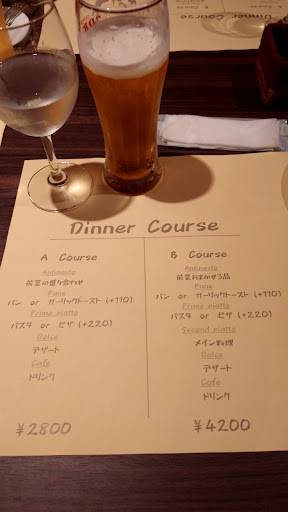 Dinner Course
A Course
Antipasto
前菜の盛り合わせ
Pane
パン or ガーリックトースト (+110)
Primo piatto
パスタ or ピザ (+220)
Dolce
デザート
Cafe
ドリンク
¥2800
B Course
Antipasto
前菜おまかせ3品
Pane
パン or ガーリックトースト (+110)
Primo piatto
パスタ or ピザ (+220)
Second piatto
メイン料理
Dolce
デザート
Cafe
ドリンク
¥4200
Dinner Course